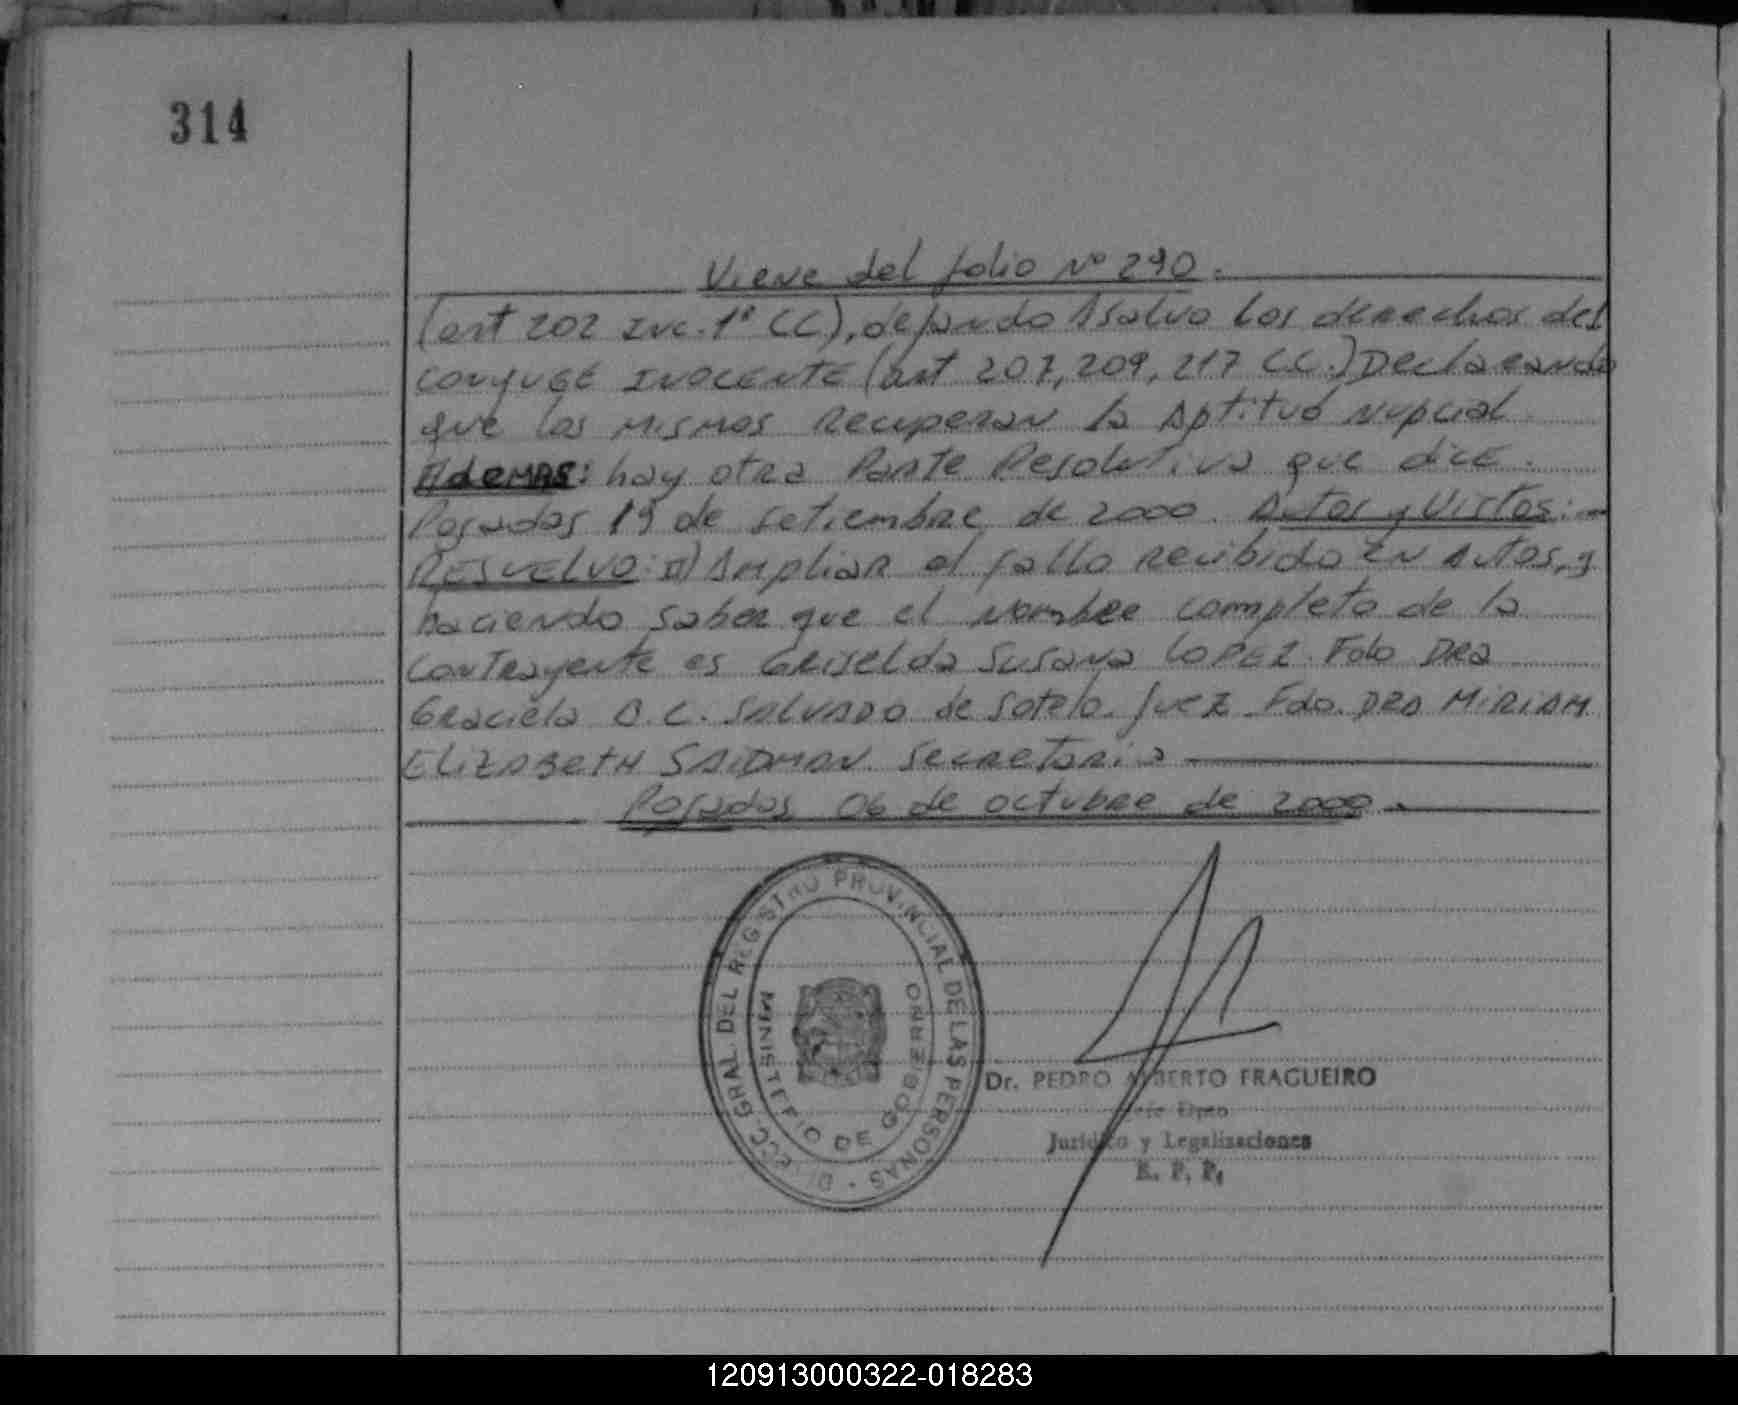 314
Viene del folio Nº 290.
(art 202 Inc. 1º CC), dejando A salvo los derechos del
conyuge INOCENTE (art 207, 209, 217 CC.) Declarando
que los mismos Recuperan la Aptitud nupcial
Ademas: hay otra Parte Resolutiva que dice.
Posadas 19 de setiembre de 2000. Autos y Vistos:
RESUELVO: II) Ampliar el fallo recibido en Autos, y
haciendo saber que el nombre completo de la
contrayente es Griselda Susana LOPEZ. Fdo DRa
Graciela B. C. SALVADO de Sotelo. Juez Fdo. DRA MIRIAM
ELIZABETH SAIDMAN. Secretaria
Posadas 06 de octubre de 2000
DIRECC. GRAL. DEL REGISTRO PROVINCIAL DE LAS PERSONAS
MINISTERIO DE GOBIERNO
Dr. PEDRO ALBERTO FRAGUEIRO
Jefe Dpto
Jurídico y Legalizaciones
R. P. P.
120913000322-018283